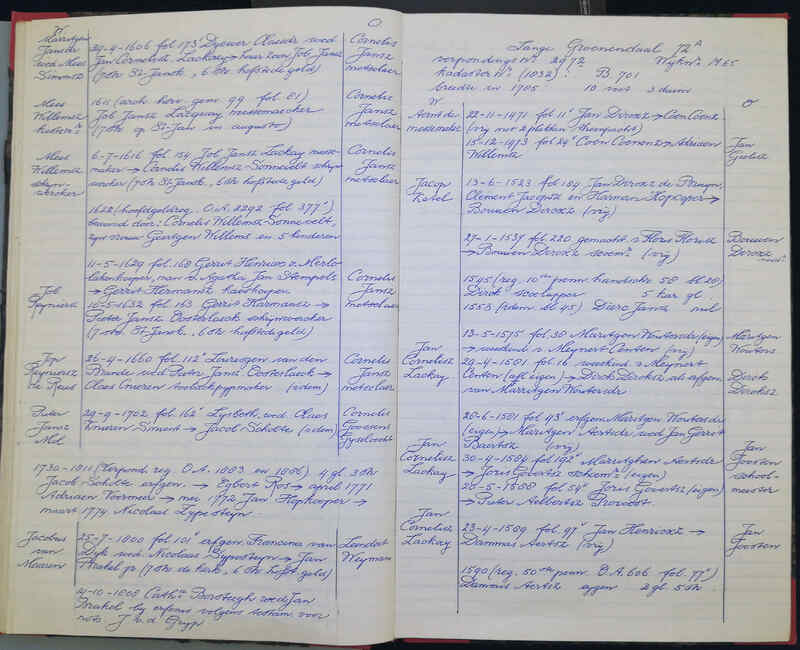 O
W
Marritgen
Jansdr
wed. Mees
Simonsz
29-4-1606 fol 173 Dyewer Claesdr wed
Jan Cornelisz. Lackay → haar zoon Job Jansz
(70st St Janok, 6 st hofstede geld)
Cornelis
Jansz
metselaer
Mees
Willemsz
1611 (arch. herv. gem. 99 fol. 81)
Job Jansz Lacquay messemaecker
(70st op St Jan in augusto)
Cornelis
Jansz
metselaer
Mees
Willemsz
schyn-
wroker
6-7-1616 fol 154 Job Jansz Lackay messe-
maker → Cornelis Willemsz Sonnevelt schyn-
wroker (70st St Janok, 6 st hofstede geld)
Cornelis
Jansz
metselaer
1622 (hoofdgeldreg. O.A. 2292 fol 377)
bewoond door: Cornelis Willemsz Sonnevelt,
zyn vrouw Geertgen Willems en 5 kinderen
11-5-1629 fol. 168 Gerrit Henricxz v. Merlo
man v. Agatha Jan Stempels
→ Gerrit Harmansz
Job
Reyniersz
16-5-1632 fol. 163 Gerrit Harmansz →
Pieter Jansz Oosterluck schynwercker
(7 0st St Janok, 6 st hofstede geld)
Cornelis
Jansz
metselaer
Job
Reyniersz
de Reus
26-4-1660 fol. 112 Lourisgen van den
Brande wd. Pieter Jansz Oosterluck →
Claes Cnieren toebackpypmaker (idem)
Cornelis
Jansz
metselaer
Pieter
Jansz
Mol
29-9-1702 fol. 162 Lysbeth wed. Claes
→ Jacob Scholte (idem)
Cornelis
Goossens
Gyselvecht
1730-1811 (Verpond. reg. O.A. 1003 en 1006) 4 gl. 3 st
Jacob Scholte erfgen. → Egbert Ros → april 1771
Adriaen Vermeer → mei 1772 Jan Hopkooper →
maart 1774 Nicolaas Sypesteyn.
Jacobus
van
Meuren
25-7-1800 fol 101 erfgen. Francina van
Dyk wed. Nicolaas Sypesteyn → Jan
Brakel jr (70st de kerk, 6 st hofst. geld)
Lendert
Weyman
14-10-1808 Cath. Borstlugh wed Jan
Brakel by erfenis volgens testam. voor
nots. J. W. d. Gryp
Lange Groenendaal 72A
verpondings Nr. 2972 Wyknr. M. 65
kadaster Nr. (1032) : B. 701
breedte in 1785 : 10 voet 3 duim
W
O
Aernt de
messemaker
22-11-1471 fol 11 Jan Dircxz → Coen Coensz
15-12-1473 fol 24 Coen Coenensz → Adriaen
Willemsz
Jan
Jacop
Ketel
13-6-1523 fol 184 Jan Dircxz de Bruyn,
Clement Jacopsz en Harman Hopcoper →
Bouwen Dircxz (vry)
27-1-1537 fol. 220 gemacht. v. Floris Florisz
→ Bouwen Dircxz (vry)
Bouwen
Dircxz
1545 (reg. 10de penn. handschr. 58 bl. 28)
Dirck 5 kar. gl.
1553 (idem bl 45) Dierc Jansz nul
Jan
Cornelisz
Lackay
13-5-1575 fol. 30 Maritgen Woutersdr (eigen)
→ weeskind v. Meynert Centen (vry)
29-4-1581 fol 16 weeskind v. Meynert
Centen (afl. eigen) → Dirck Dircksz als erfgen.
van Marritgen Woutersdr
Maritgen
Wouters
Dirck
Dircksz
26-6-1581 fol 43 erfgen. Maritgen Woutersdr
(eigen) → Maritgen Aertsdr wed Jan Gerrit
Baertsz (vry)
Jan
Cornelisz
Lackay
30-4-1584 fol 192 Marritghen Aertsdr
→ Joris Govertsz (eigen)
20-5-1588 fol 54 Joris Govertsz (eigen)
→ Pieter Aelbertsz Provoost
Jan
Joosten
school-
meester
Jan
Cornelisz
Lackay
23-4-1589 fol. 97 Jan Henricxz →
Dammas Aertsz (vry)
Jan
Joosten
1590 (reg. 50ste penn. O.A. 606 fol. 77)
Damas Aertsz eygen 2 gl. 5 st.